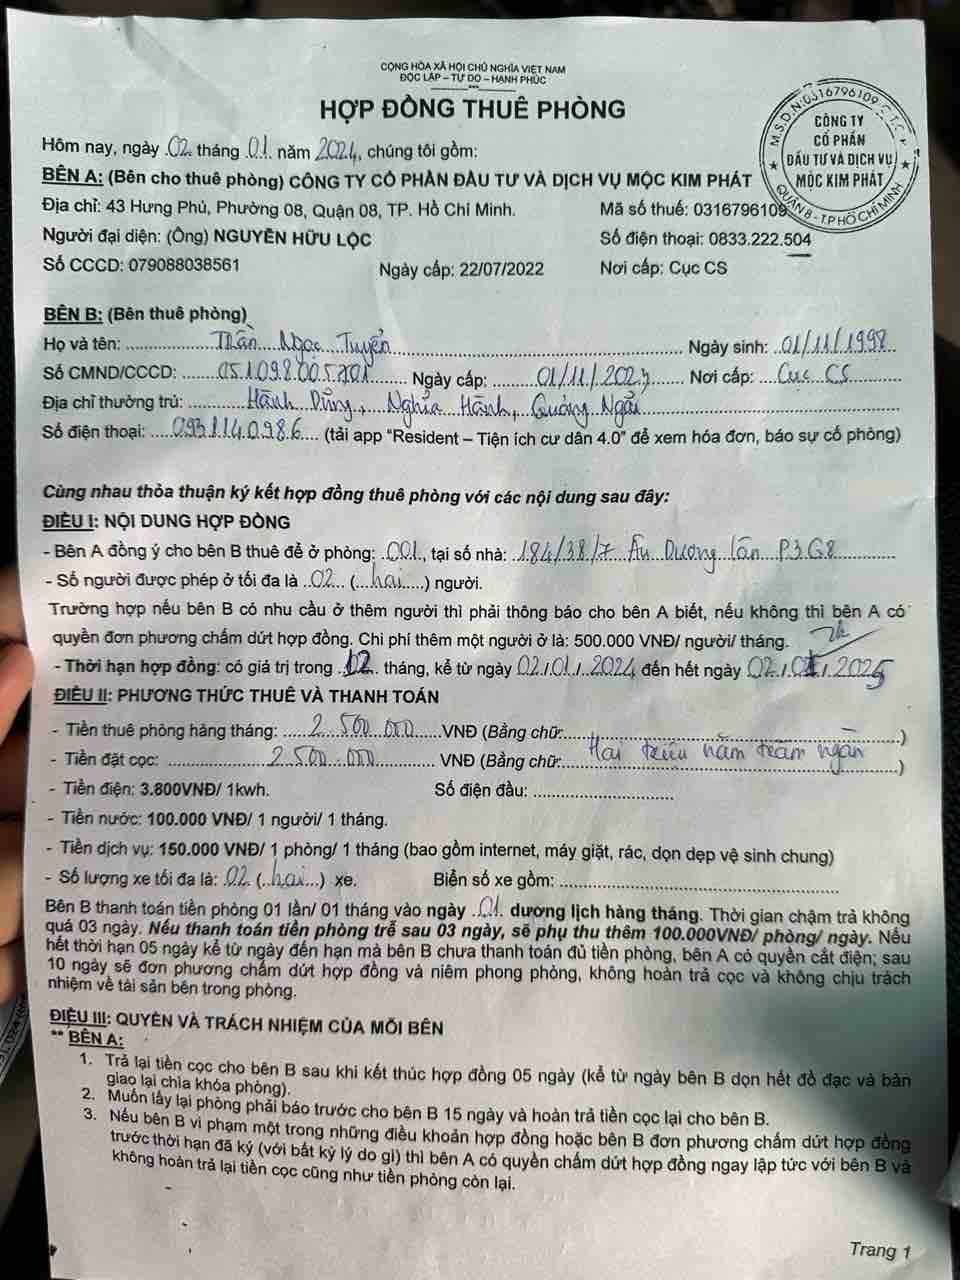 CỘNG HÒA XÃ HỘI CHỦ NGHĨA VIỆT NAM
ĐỘC LẬP – TỰ DO – HẠNH PHÚC
***
HỢP ĐỒNG THUÊ PHÒNG
M.S.D.N:0316796109
CÔNG TY
CỔ PHẦN
ĐẦU TƯ VÀ DỊCH VỤ
MỘC KIM PHÁT
QUẬN 8 - T.P HỒ CHÍ MINH
Hôm nay, ngày 02 tháng 01 năm 2024, chúng tôi gồm:
BÊN A: (Bên cho thuê phòng) CÔNG TY CỔ PHẦN ĐẦU TƯ VÀ DỊCH VỤ MỘC KIM PHÁT
Địa chỉ: 43 Hưng Phú, Phường 08, Quận 08, TP. Hồ Chí Minh. Mã số thuế: 0316796109
Người đại diện: (Ông) NGUYỄN HỮU LỘC Số điện thoại: 0833.222.504
Số CCCD: 079088038561 Ngày cấp: 22/07/2022 Nơi cấp: Cục CS
BÊN B: (Bên thuê phòng)
Họ và tên: Trần Ngọc Tuyển Ngày sinh: 01/11/1998
Số CMND/CCCD: Ngày cấp: 01/11/2023 Nơi cấp: Cục CS
Địa chỉ thường trú: Hành Dũng, Nghĩa Hành, Quảng Ngãi
Số điện thoại: 0931140986 (tải app “Resident – Tiện ích cư dân 4.0” để xem hóa đơn, báo sự cố phòng)
Cùng nhau thỏa thuận ký kết hợp đồng thuê phòng với các nội dung sau đây:
ĐIỀU I: NỘI DUNG HỢP ĐỒNG
- Bên A đồng ý cho bên B thuê để ở phòng: 001, tại số nhà: 184/38/7 Âu Dương Lân P3Q8
- Số người được phép ở tối đa là 02 (hai) người.
Trường hợp nếu bên B có nhu cầu ở thêm người thì phải thông báo cho bên A biết, nếu không thì bên A có
quyền đơn phương chấm dứt hợp đồng. Chi phí thêm một người ở là: 500.000 VNĐ/ người/ tháng.
- Thời hạn hợp đồng: có giá trị trong 12 tháng, kể từ ngày 02/01/2024 đến hết ngày 02/01/2025
ĐIỀU II: PHƯƠNG THỨC THUÊ VÀ THANH TOÁN
- Tiền thuê phòng hàng tháng: 2.500.000 VNĐ (Bằng chữ: )
- Tiền đặt cọc: 2.500.000 VNĐ (Bằng chữ: Hai triệu năm trăm ngàn )
- Tiền điện: 3.800VNĐ/ 1kwh. Số điện đầu:
- Tiền nước: 100.000 VNĐ/ 1 người/ 1 tháng.
- Tiền dịch vụ: 150.000 VNĐ/ 1 phòng/ 1 tháng (bao gồm internet, máy giặt, rác, dọn dẹp vệ sinh chung)
- Số lượng xe tối đa là: 02 (hai) xe. Biển số xe gồm:
Bên B thanh toán tiền phòng 01 lần/ 01 tháng vào ngày 01 dương lịch hàng tháng. Thời gian chậm trả không
quá 03 ngày. Nếu thanh toán tiền phòng trễ sau 03 ngày, sẽ phụ thu thêm 100.000VNĐ/ phòng/ ngày. Nếu
hết thời hạn 05 ngày kể từ ngày đến hạn mà bên B chưa thanh toán đủ tiền phòng, bên A có quyền cắt điện; sau
10 ngày sẽ đơn phương chấm dứt hợp đồng và niêm phong phòng, không hoàn trả cọc và không chịu trách
nhiệm về tài sản bên trong phòng.
ĐIỀU III: QUYỀN VÀ TRÁCH NHIỆM CỦA MỖI BÊN
** BÊN A:
1. Trả lại tiền cọc cho bên B sau khi kết thúc hợp đồng 05 ngày (kể từ ngày bên B dọn hết đồ đạc và bàn
giao lại chìa khóa phòng).
2. Muốn lấy lại phòng phải báo trước cho bên B 15 ngày và hoàn trả tiền cọc lại cho bên B.
3. Nếu bên B vi phạm một trong những điều khoản hợp đồng hoặc bên B đơn phương chấm dứt hợp đồng
trước thời hạn đã ký (với bất kỳ lý do gì) thì bên A có quyền chấm dứt hợp đồng ngay lập tức với bên B và
không hoàn trả lại tiền cọc cũng như tiền phòng còn lại.
Trang 1